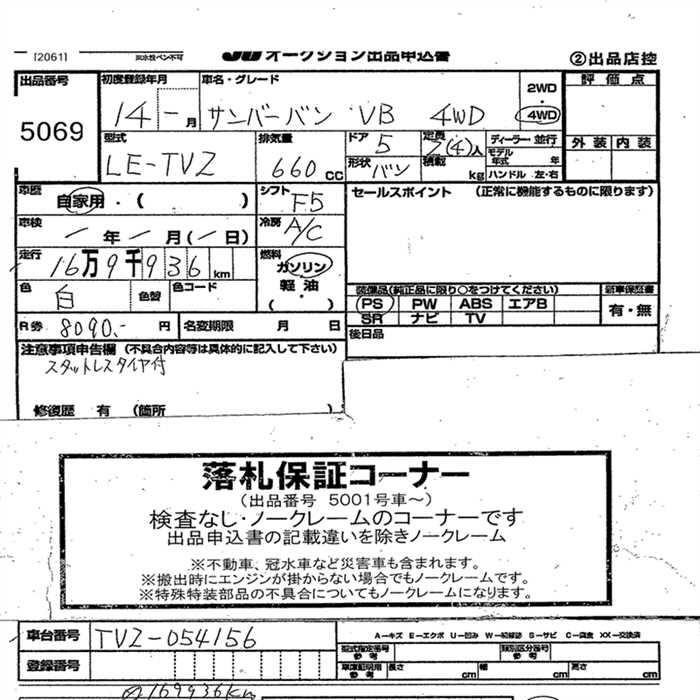 [2061] 油水性ペン不可 JU オークション出品申込書 ②出品店控
出品番号 初度登録年月 車名・グレード 評価点
5069 14 - 月 サンバーバン VB 4WD 2WD・4WD
型式 排気量 ドア 定員 ディーラー・並行 外装 内装
LE-TVZ 660 CC 5 2(4)人 モデル年式 年
形状 バン 積載 kg ハンドル 左・右
車歴 自家用・( ) シフト F5 セールスポイント (正常に機能するものに限ります)
車検 - 年 - 月 (- 日) 冷房 A/C
走行 16万9千936 km 燃料 ガソリン・軽油・( )
色 白 色替 色コード 装備品(純正品に限り○をつけてください) 新車保証書
PS PW ABS エアB 有・無
R券 8090.- 円 名変期限 月 日 SR ナビ TV
注意事項申告欄 (不具合内容等は具体的に記入して下さい) 後日品
スタットレスタイヤ付
修復歴 有 (箇所 )
落札保証コーナー
(出品番号 5001号車~)
検査なし・ノークレームのコーナーです
出品申込書の記載違いを除きノークレーム
※不動車、冠水車など災害車も含まれます。
※搬出時にエンジンが掛からない場合でもノークレームです。
※特殊特装部品の不具合についてもノークレームになります。
車台番号 TVZ-054156 A-キズ E-エクボ U-凹み W-補修跡 S-サビ C-腐食 XX-交換済
型式指定番号 参考 類別区分番号 参考
登録番号 車庫証明用 参考 長さ cm 幅 cm 高さ cm
169936km